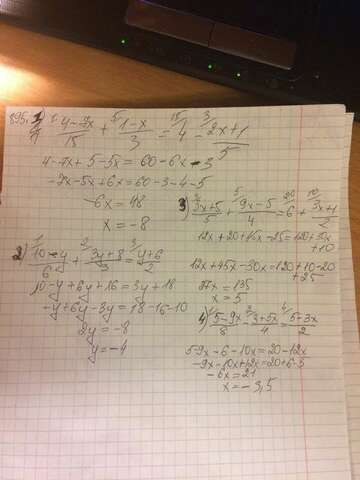 895. 1) (4-7x)/15 + (1-x)/3 = 4 - (2x+1)/5
4-7x+5-5x=60-6x-3
-7x-5x+6x=60-3-4-5
-6x=48
x=-8
2) (10-y)/6 + (3y+8)/3 = (y+6)/2
10-y+6y+16=3y+18
-y+6y-3y=18-16-10
2y=-8
y=-4
3) (3x+5)/5 + (9x-5)/4 = 6 + (3x+1)/2
12x+20+45x-25=120+30x+10
12x+45x-30x=120+10-20+25
27x=135
x=5
4) (5-9x)/8 - (3+5x)/4 = (5+3x)/2
5-9x-6-10x=20-12x
-9x-10x+12x=20+6-5
-6x=21
x=-3,5